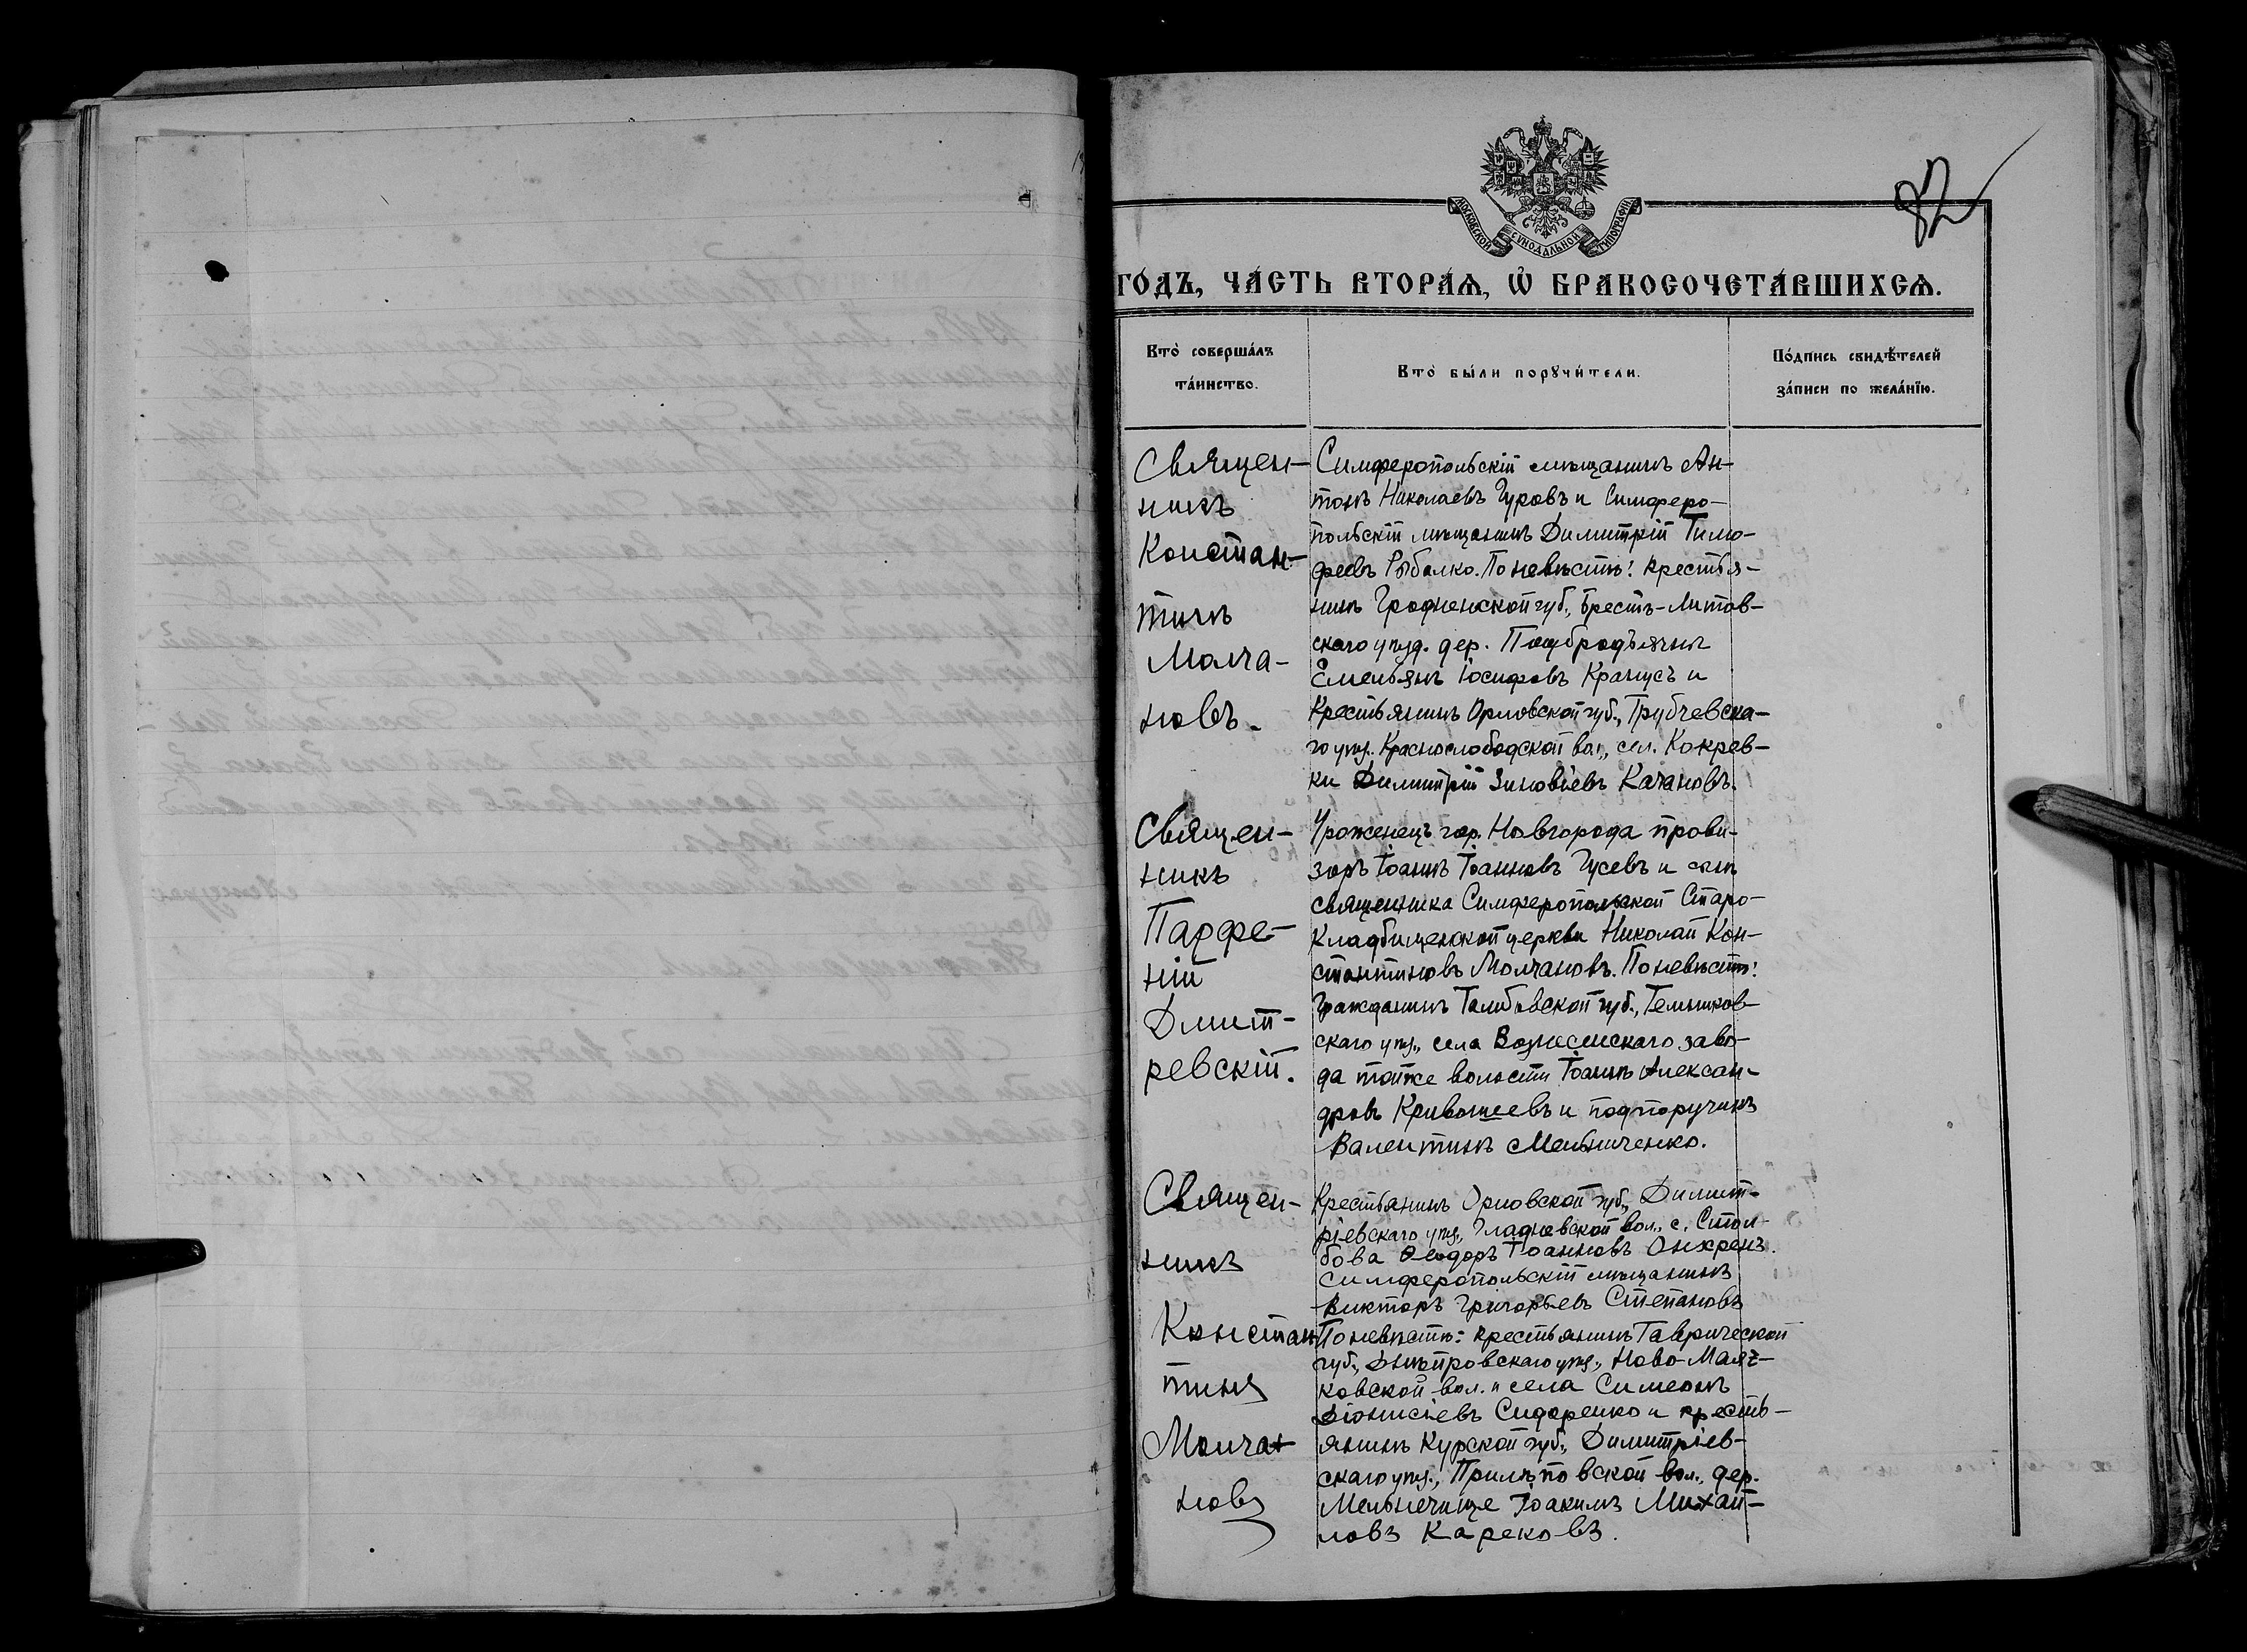 82
МОСКОВСКОЙ СѴНОДАЛЬНОЙ ТИПОГРАФІИ
ГОДЪ, ЧАСТЬ ВТОРАѦ, Ѿ БРАКОСОЧЕТАВШИХСѦ.
Кто совершалъ
таинство.
Кто были порꙋчители.
Подпись свидѣтелей
записи по желанїю.
Священ-
никъ
Констан-
тинъ
Молча-
новъ.
Симферопольскій мѣщанинъ Ан-
тонъ Николаевъ Гуровъ и Симферо-
польскій мѣщанинъ Димитрій Тимо-
феевъ Рыбалко. По невѣстѣ: крестья-
нинъ Гродненской губ., Брестъ-Литов-
скаго уѣзд. дер.
Емельянъ Іосифовъ и
Крестьянинъ Орловской губ., Трубчевска-
го уѣз. Краснослободской вол., сел. Кокрев-
ки Димитрій Зиновіевъ Качановъ.
Священ-
никъ
Парфе-
ній
Дмит-
ревскій.
Уроженецъ гор. Новгорода прови-
зоръ Іоаннъ Іоанновъ Гусевъ и сынъ
священника Симферопольской Старо-
Кладбищенской церкви Николай Кон-
стантиновъ Молчановъ. По невѣстѣ:
Гражданинъ Тамбовской губ., Темников-
скаго уѣз., села Вознесенскаго заво-
да той же волости Іоаннъ Алексан-
дровъ Кривошеевъ и подпоручикъ
Валентинъ Мельниченко.
Священ-
никъ
Констан
тинъ
Молча-
новъ
Крестьянинъ Орловской губ., Димит-
ріевскаго уѣз., Гладневской вол., с. Стол-
бова Ѳеодоръ Іоанновъ
Симферопольскій мѣщанинъ
Викторъ Григорьевъ Степановъ
По невѣстѣ: крестьянинъ Таврической
губ., Днѣпровскаго уѣз., Ново-Маяч-
ковской вол. и села Симеонъ
Діонисіевъ Сидоренко и кресть-
янинъ Курской губ., Димитріев-
скаго уѣз., Прилѣповской вол., дер.
Мельнечище Іоакимъ Михай-
ловъ Карековъ.